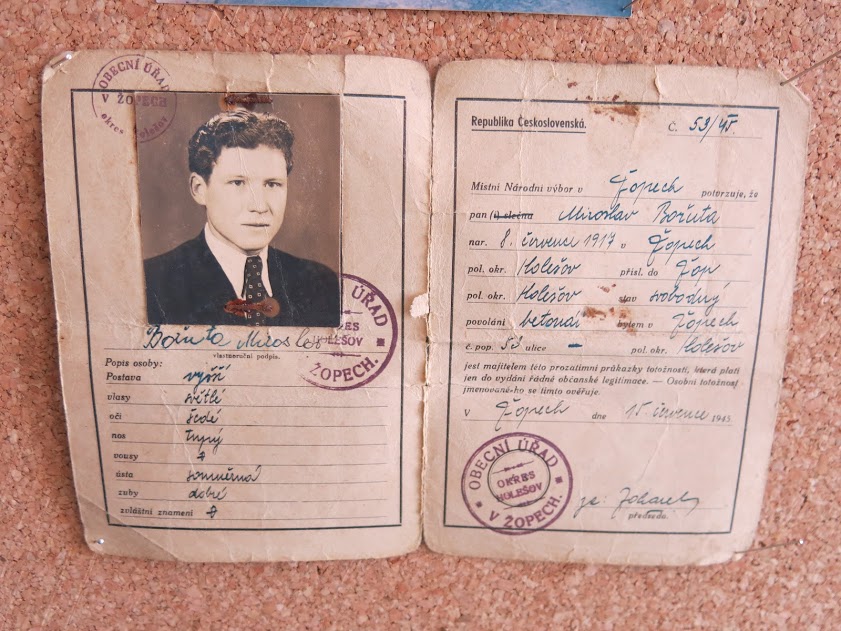 OBECNÍ ÚŘAD
V ŽOPECH
okres Holešov
Bořuta Miroslav
vlastnoruční podpis.
ÚŘAD
OKRES
HOLEŠOV
ŽOPECH.
Popis osoby:
Postava vyšší
vlasy světlé
oči šedé
nos tupý
vousy
ústa souměrná
zuby dobré
zvláštní znamení
Republika Československá.
Č. 53/45
Místní Národní výbor v Žopech potvrzuje, že
pan (i) slečna Miroslav Bořuta
nar. 8. července 1917 v Žopech
pol. okr. Holešov přísl. do Žop
pol. okr. Holešov stav svobodný
povolání betonář bytem v Žopech
č. pop. 53 ulice — pol. okr. Holešov
jest majitelem této prozatimní průkazky totožnosti, která platí
jen do vydání řádné občanské legitimace. — Osobní totožnost
jmenované-ho se tímto ověřuje.
V Žopech dne 15. července 1945
OBECNÍ ÚŘAD
OKRES
HOLEŠOV
V ŽOPECH.
předseda.